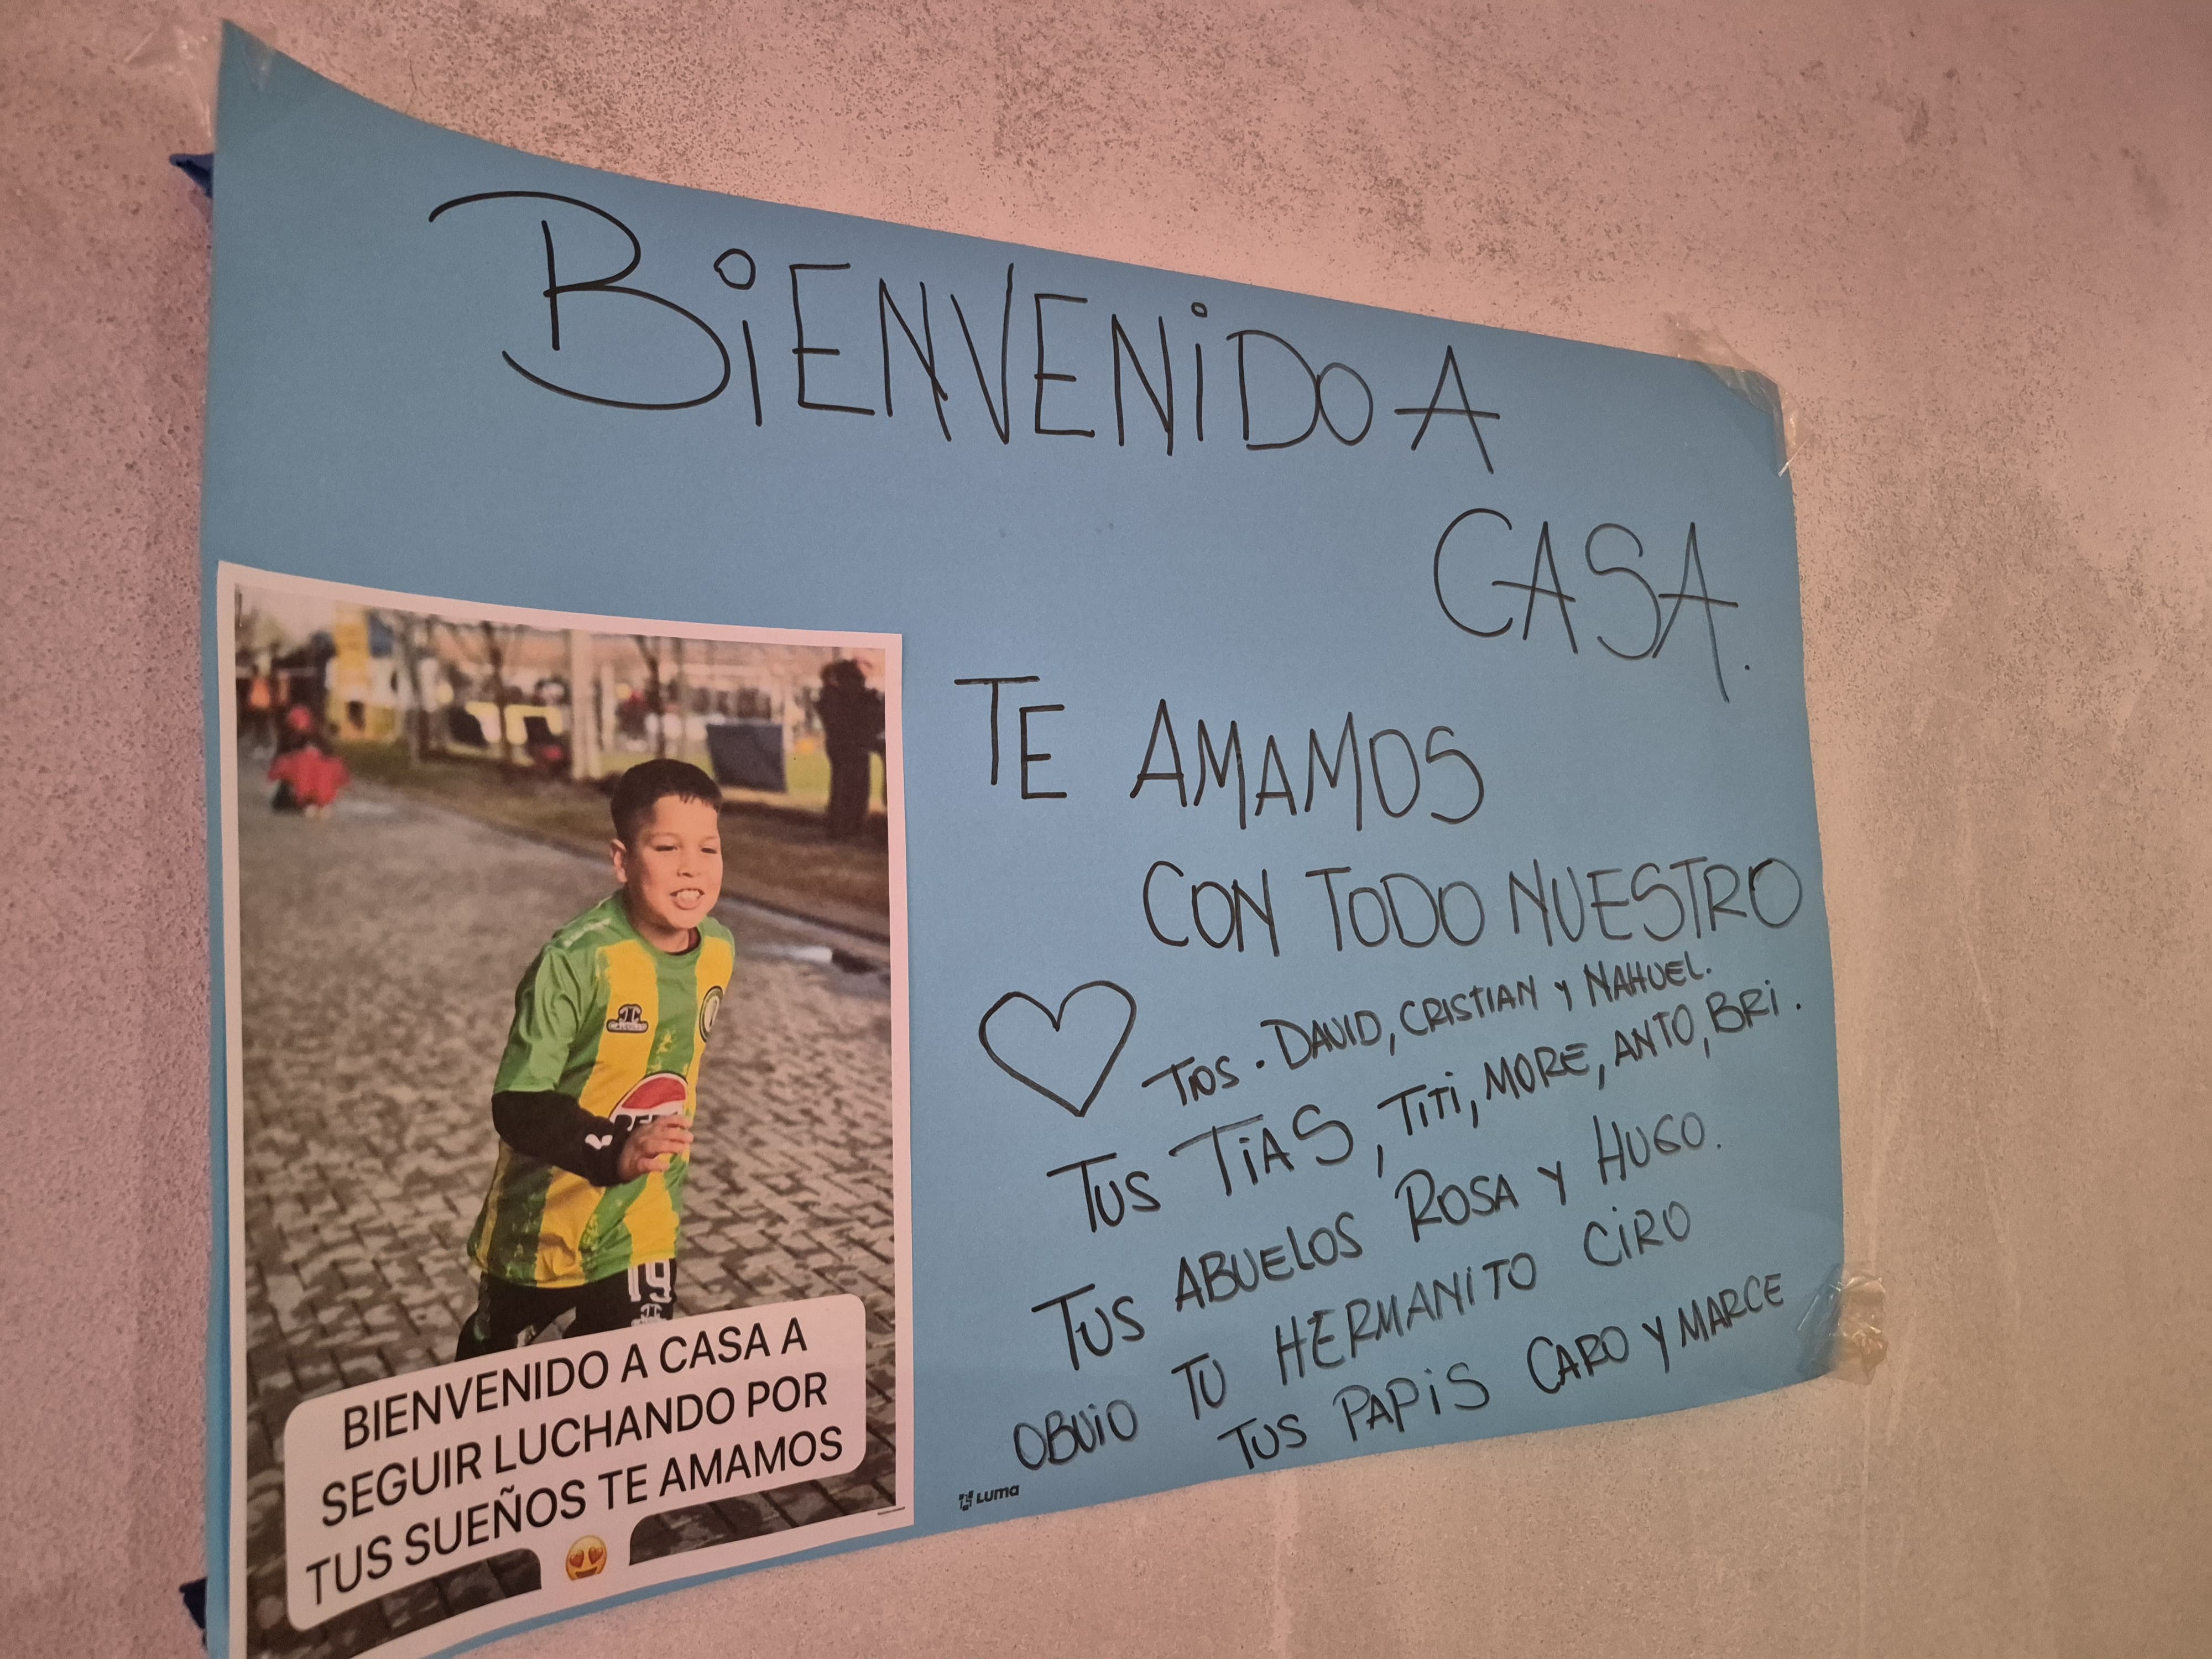 BIENVENIDO A
CASA.
TE AMAMOS
CON TODO NUESTRO
TIOS. DAVID, CRISTIAN Y NAHUEL.
TUS TIAS, TITI, MORE, ANTO, BRI.
TUS ABUELOS ROSA Y HUGO.
OBVIO TU HERMANITO CIRO
TUS PAPIS CARO Y MARCE
LUMA
19
BIENVENIDO A CASA A
SEGUIR LUCHANDO POR
TUS SUEÑOS TE AMAMOS